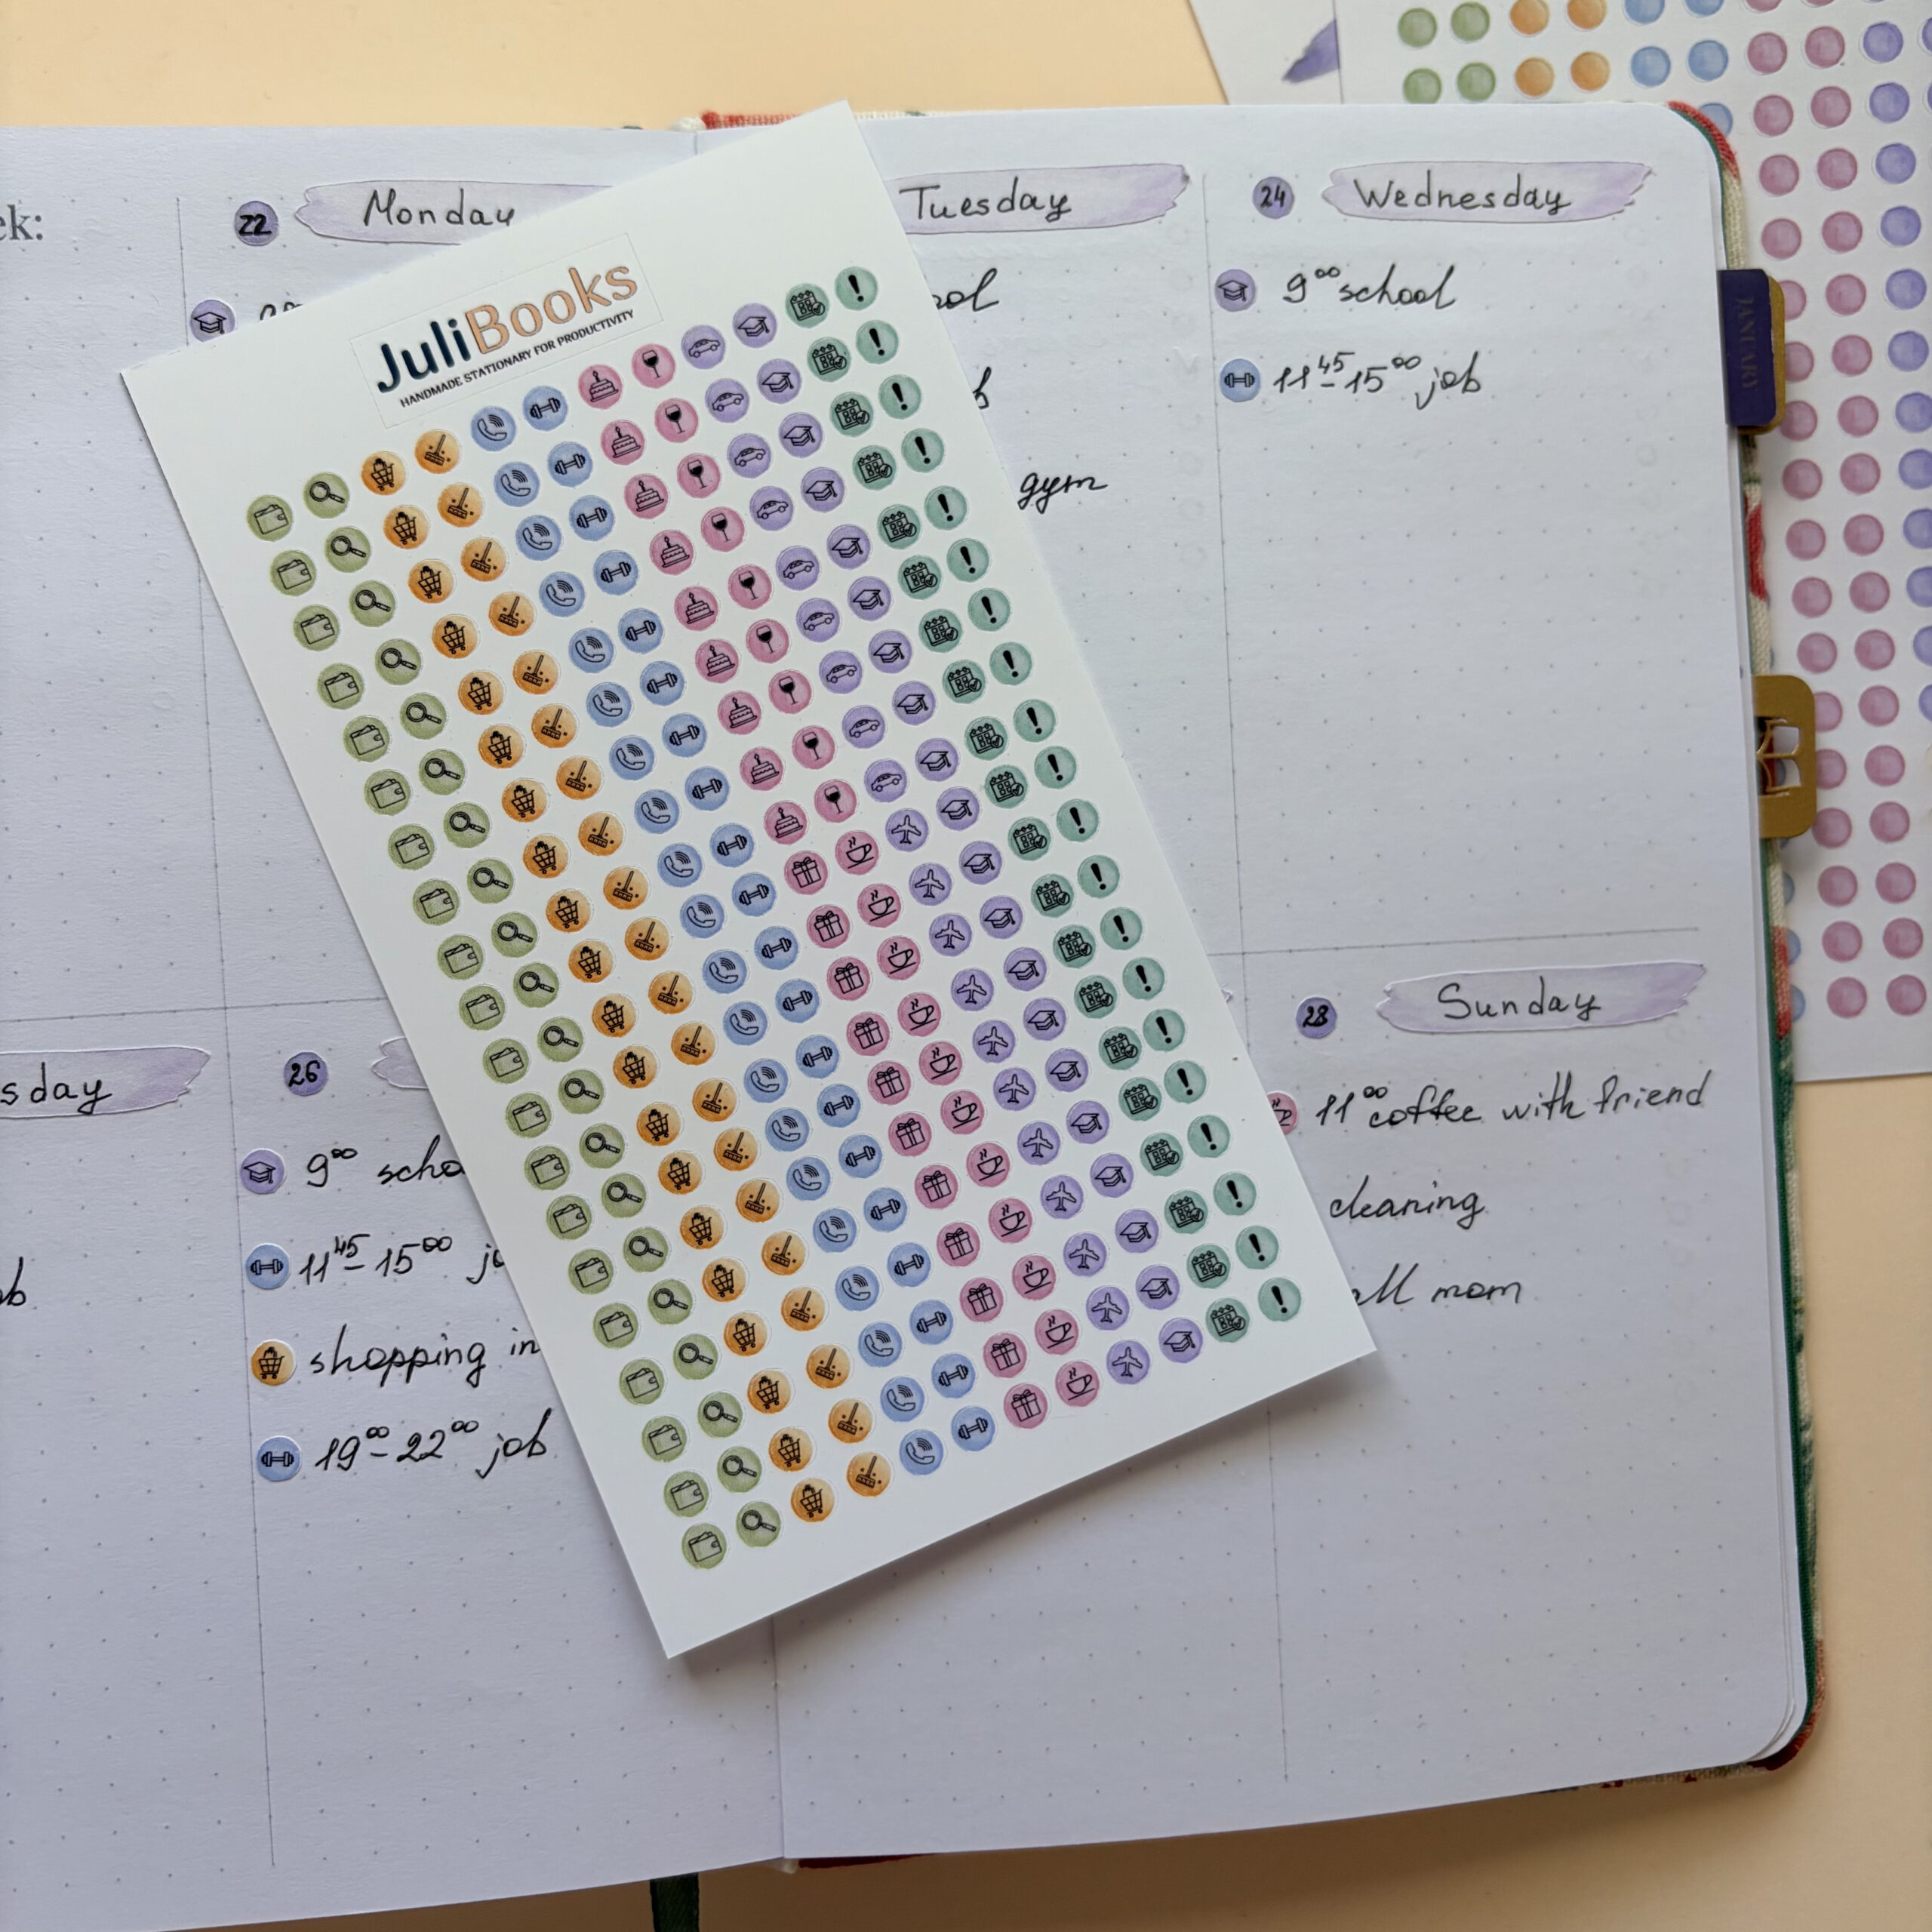 ek:
22 Monday
Tuesday
24 Wednesday
9⁰⁰ school
11⁴⁵-15⁰⁰ job
gym
JANUARY
JuliBooks
HANDMADE STATIONARY FOR PRODUCTIVITY
sday
26
9⁰⁰ scho
11⁴⁵-15⁰⁰ jo
shopping in
19⁰⁰-22⁰⁰ job
28 Sunday
11⁰⁰ coffee with friend
cleaning
all mom